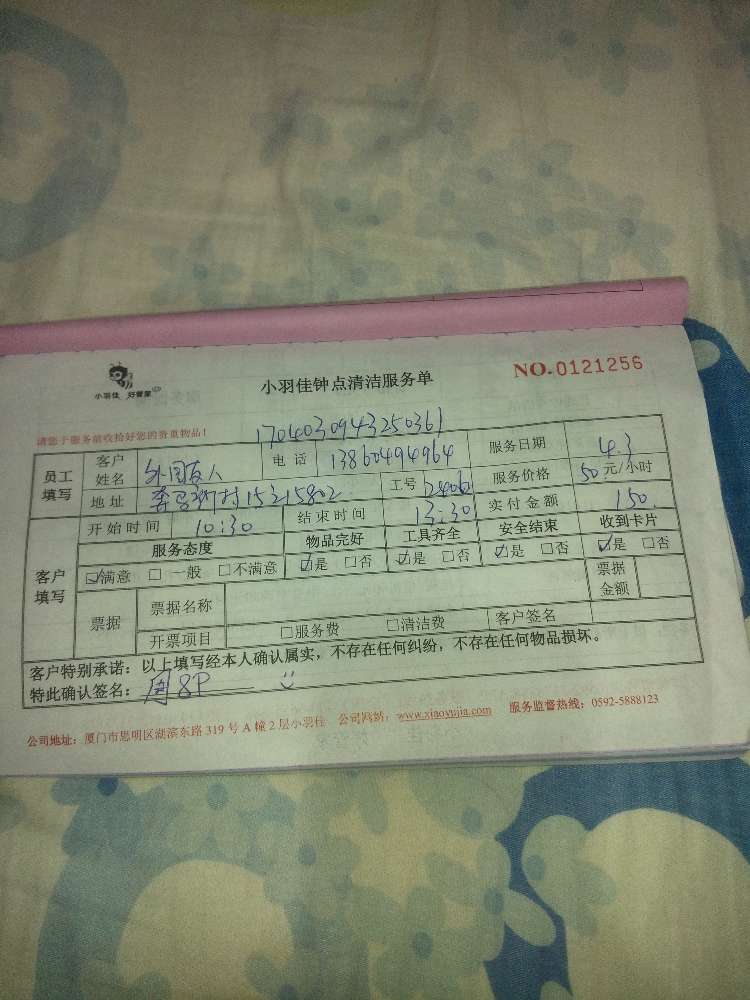 小羽佳 好管家
小羽佳钟点清洁服务单
NO.0121256
请您于服务前收拾好您的贵重物品!
1704030943250361
员工填写 客户姓名 外国友人 电话 13860494964 服务日期 4.3
地址 15215802 工号 2406 服务价格 50元/小时
客户填写 开始时间 10:30 结束时间 13:30 实付金额 150
服务态度 物品完好 工具齐全 安全结束 收到卡片
☑满意 □一般 □不满意 ☑是 □否 ☑是 □否 ☑是 □否 ☑是 □否
票据 票据名称 票据金额
开票项目 □服务费 □清洁费 客户签名
客户特别承诺：以上填写经本人确认属实，不存在任何纠纷，不存在任何物品损坏。
特此确认签名：
公司地址：厦门市思明区湖滨东路 319 号 A 幢 2 层小羽佳 公司网站：www.xiaoyujia.com 服务监督热线：0592-5888123